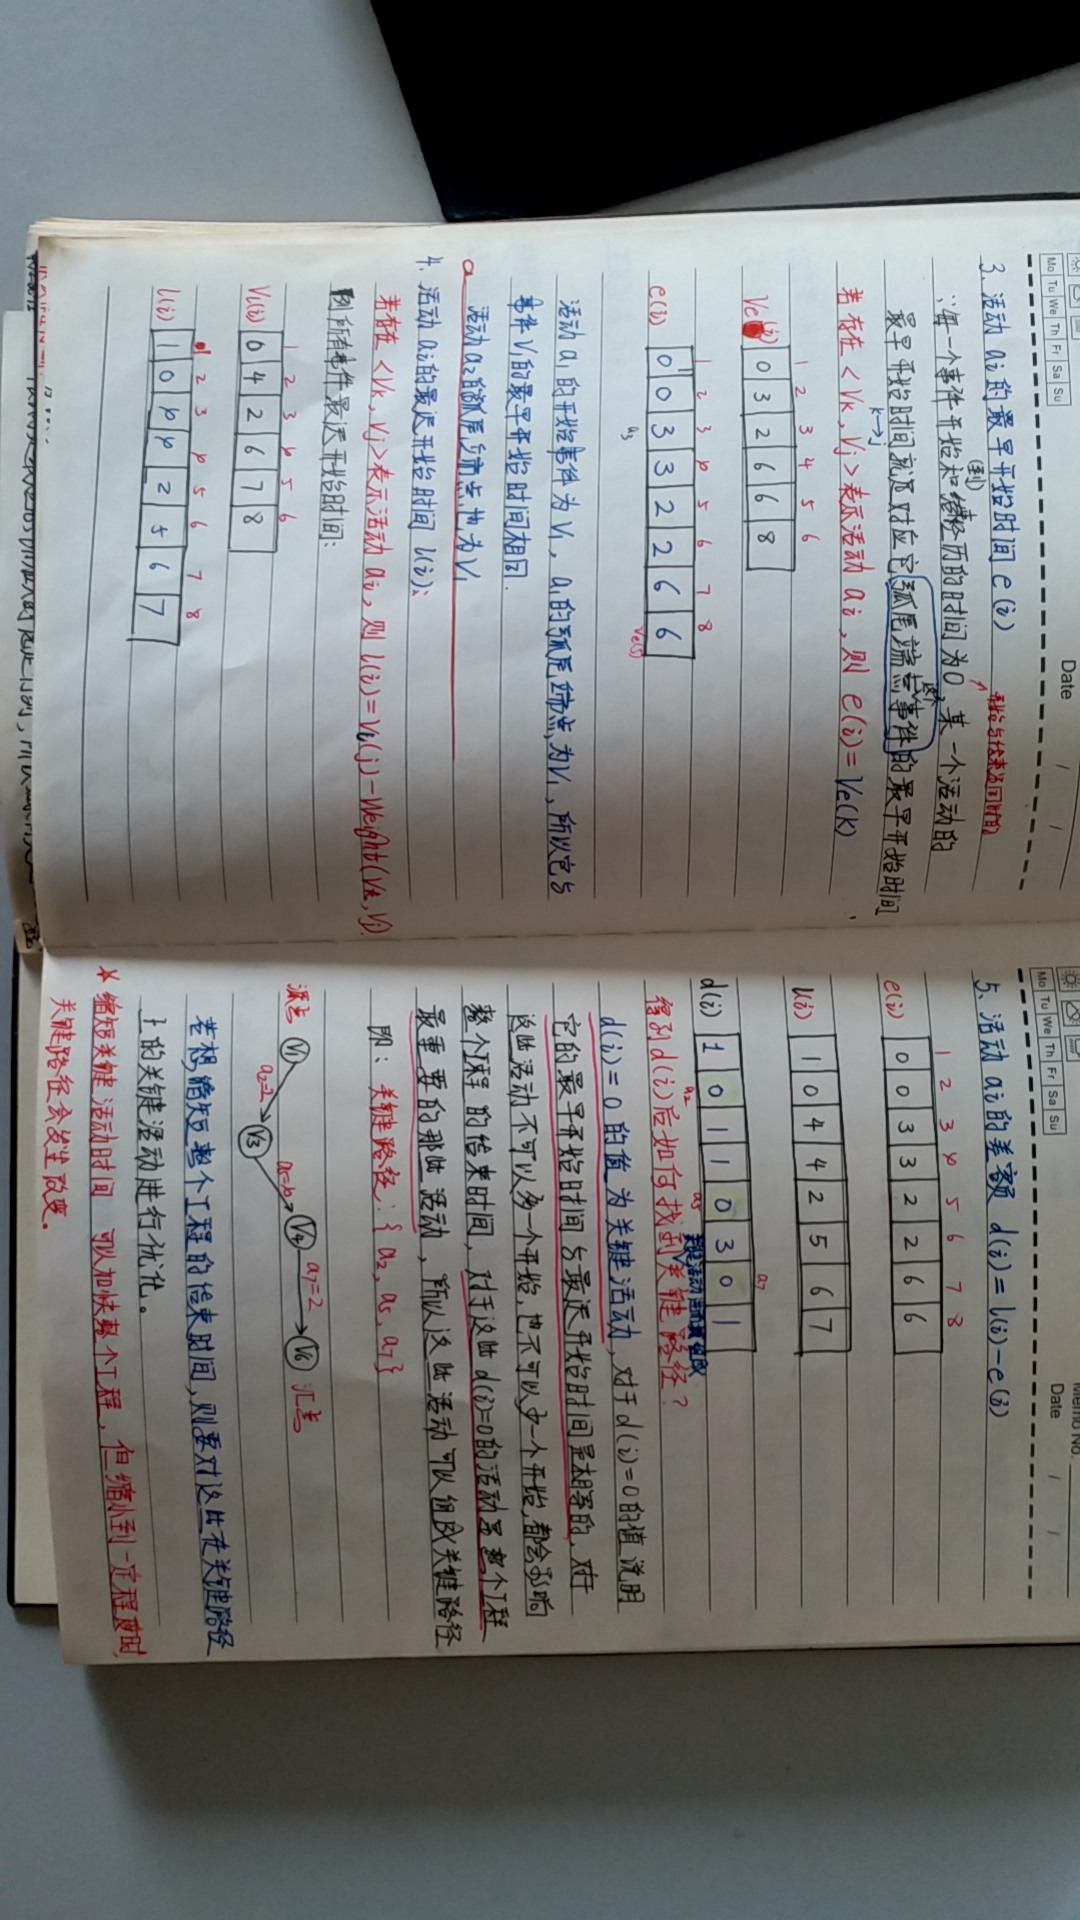 Date / /
Mo Tu We Th Fr Sa Su
3. 活动 ai 的最早开始时间 e(i)
∵每一个事件开始和(到)继经历的时间为0, 某一个活动的
最早开始时间就源对应它弧尾端点事件的最早开始时间
k→j
若存在 <Vk, Vj> 表示活动 ai, 则 e(i) = Ve(K)
1 2 3 4 5 6
Ve(i) 0 3 2 6 6 8
1 2 3 4 5 6 7 8
e(i) 0 0 3 3 2 2 6 6
a3
活动 a1 的开始事件为 V1, a1 的弧尾端点为 V1, 所以它与
事件 V1 的最早开始时间相同.
活动 a2 的弧尾端点也为 V1
4. 活动 ai 的最迟开始时间 l(i):
若存在 <Vk, Vj> 表示活动 ai, 则 l(i) = Vl(j) - Weight(Vk, Vj)
所有事件最迟开始时间:
1 2 3 4 5 6
Vl(i) 0 4 2 6 7 8
1 2 3 4 5 6 7 8
l(i) 1 0 4 4 2 5 6 7
Memo No.
Date / /
Mo Tu We Th Fr Sa Su
5. 活动 ai 的差额 d(i) = l(i) - e(i)
1 2 3 4 5 6 7 8
e(i) 0 0 3 3 2 2 6 6
l(i) 1 0 4 4 2 5 6 7
d(i) 1 0 1 1 0 3 0 1
a2 a5 a7
得到 d(i) 后如何找到关键路径?
d(i)=0 的值为关键活动, 对于 d(i)=0 的值说明
它的最早开始时间与最迟开始时间是相等的, 对于
这些活动不可以多一个开始, 也不可以少一个开始, 都会影响
整个工程的结束时间, 对于这些 d(i)=0 的活动是整个工程
最重要的那些活动, 所以这些活动可以组成关键路径
即: 关键路径: {a2, a5, a7}
源点 V1 a2=2 V3 a5=4 V4 a7=2 V6 汇点
若想缩短整个工程的结束时间, 则要对这些在关键路径
上的关键活动进行优化。
* 缩短关键活动时间 可以加快整个工程, 但缩小到一定程度时
关键路径会发生改变。